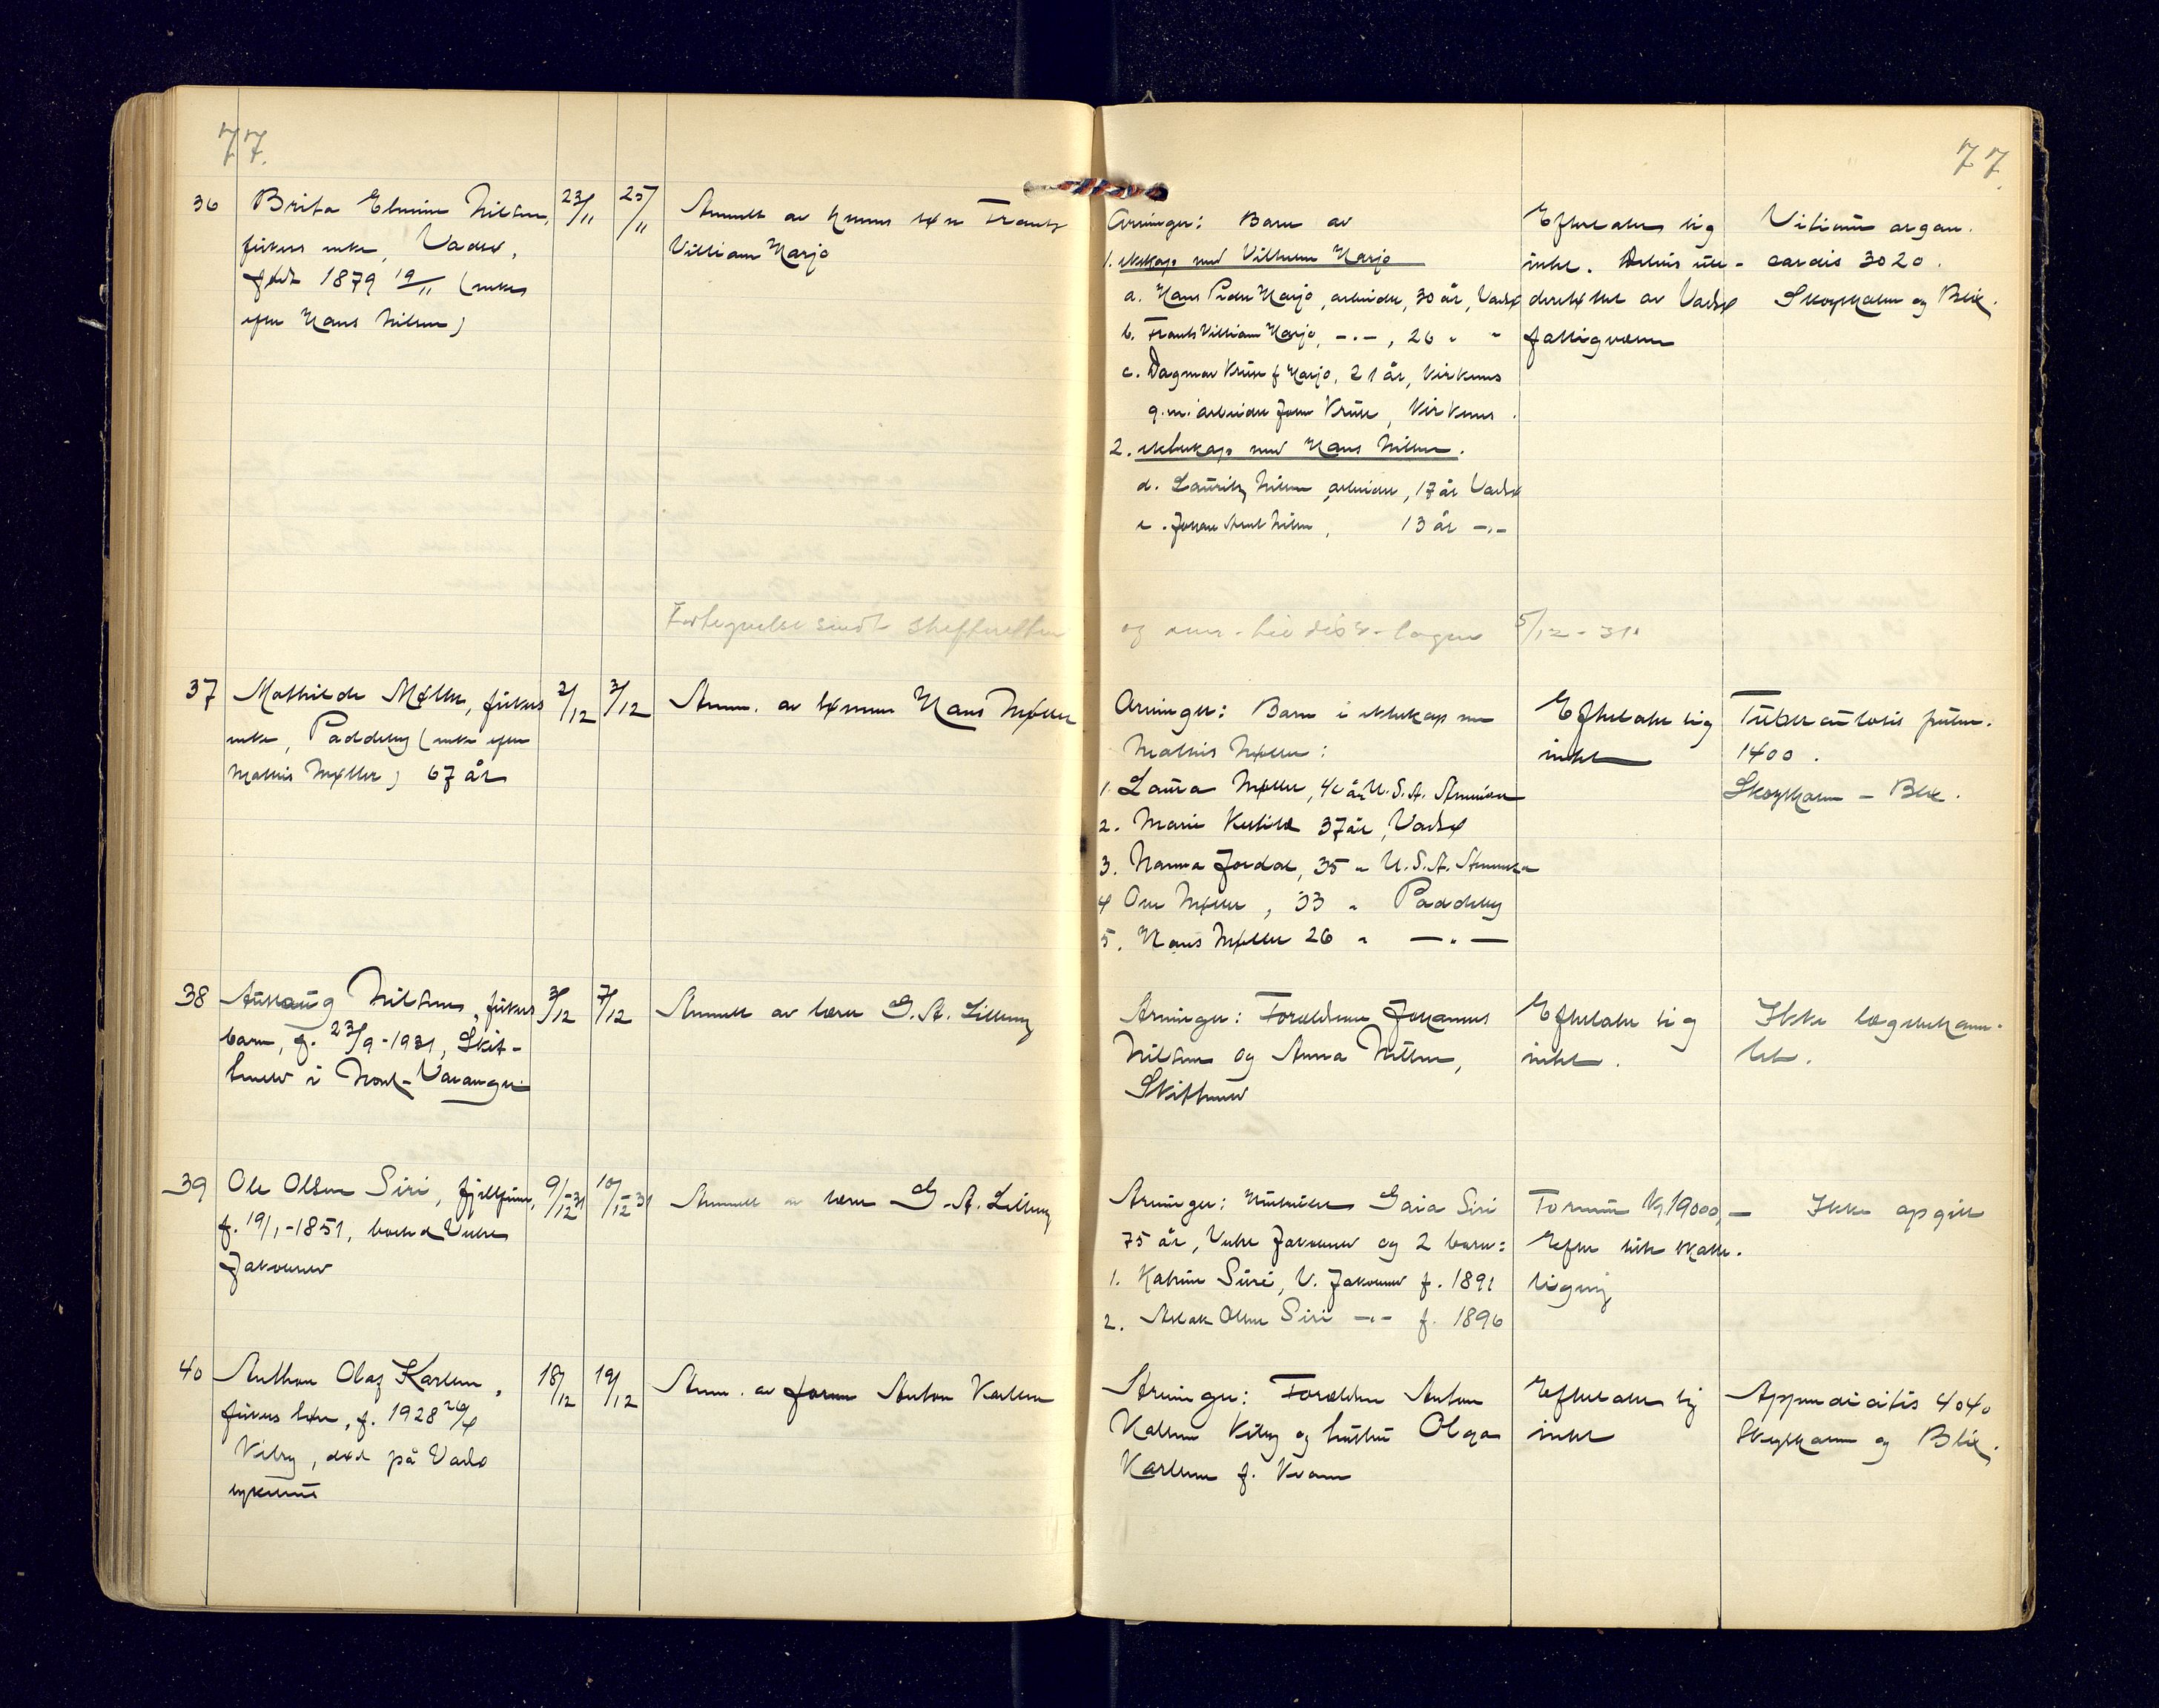 77.
77.
36
Brita Elmine Nilsen,
fiskers enke, Vadsø,
født 1879 19/11 (enke
efter Hans Nilsen)
23/11
25/11
Anmeldt av hennes søn Frantz
William Marjo
Arvinger: Barn av
1. ekteskap med Vilhelm Marjo
a. Hans Peder Marjo, arbeider, 30 år, Vadsø
b. Frants William Marjo, -"-, 26 " "
c. Dagmar Kruse f. Marjo, 21 år, Kirkenes
g.m. arbeider John Kruse, Kirkenes.
2. ekteskap med Hans Nilsen.
d. Lauritz Nilsen, arbeider, 17 år Vadsø
e. Johan Nilsen, 13 år -"-
Efterlater sig
intet. Delvis un-
derstøttet av Vadsø
fattigvesen
Vitium organ.
cordis 3020.
Skogholm og Blix.
Fortegnelse sendt skifteretten
og 5/12-31.
37
Mathilde Møller, fiskers
enke, Paddeby (enke efter
Mathis Møller) 67 år
2/12
3/12
Anm. av sønnen Hans Møller
Arvinger: Barn i ekteskap med
Mathis Møller:
1. Laura Møller, år U.S.A. Amerika
2. Marie 37 år, Vadsø
3. Hanna Jordal, 35 " U.S.A. Amerika
4 Ove Møller, 33 " Paddeby
5. Hans Møller 26 " -"-
Efterlater sig
intet
Tuberculosis pulm.
1400.
Skogholm - Blix.
38
Aslaug Nilsen, fiskers
barn, f. 23/9-1931, Skit-
hunes i Nord-Varanger
3/12
7/12
Anmeldt av lærer G. A. Lilleng
Arvinger: Foreldrene Johannes
Nilsen og Anna Nilsen,
Efterlater sig
intet.
Ikke lægebehand-
let.
39
Ole Olsen Siri, fjellfinn,
f. 19/1-1851, bosted Vestre
Jakobselv
9/12-31
10/12-31
Anmeldt av lærer G. A. Lilleng
Arvinger: Hustruen Gaia Siri
75 år, Vestre Jakobselv og 2 barn:
1. Katrine Siri, V. Jakobselv f. 1891
2. Aslak Olsen Siri -"- f. 1896
Formue Kr. 19000,-
Efter siste skatte-
ligning
Ikke opgitt
40
Anthon Olaf Karlsen,
fiskers søn, f. 1928 26/4
Kiby, død på Vadsø
sykehus
18/12
19/12
Anm. av faren Anton Karlsen
Arvinger: Foreldrene Anton
Karlsen Kiby og hustru Olga
Karlsen f. Kvam
Efterlater sig
intet
Appendicitis 4040
Skogholm og Blix.